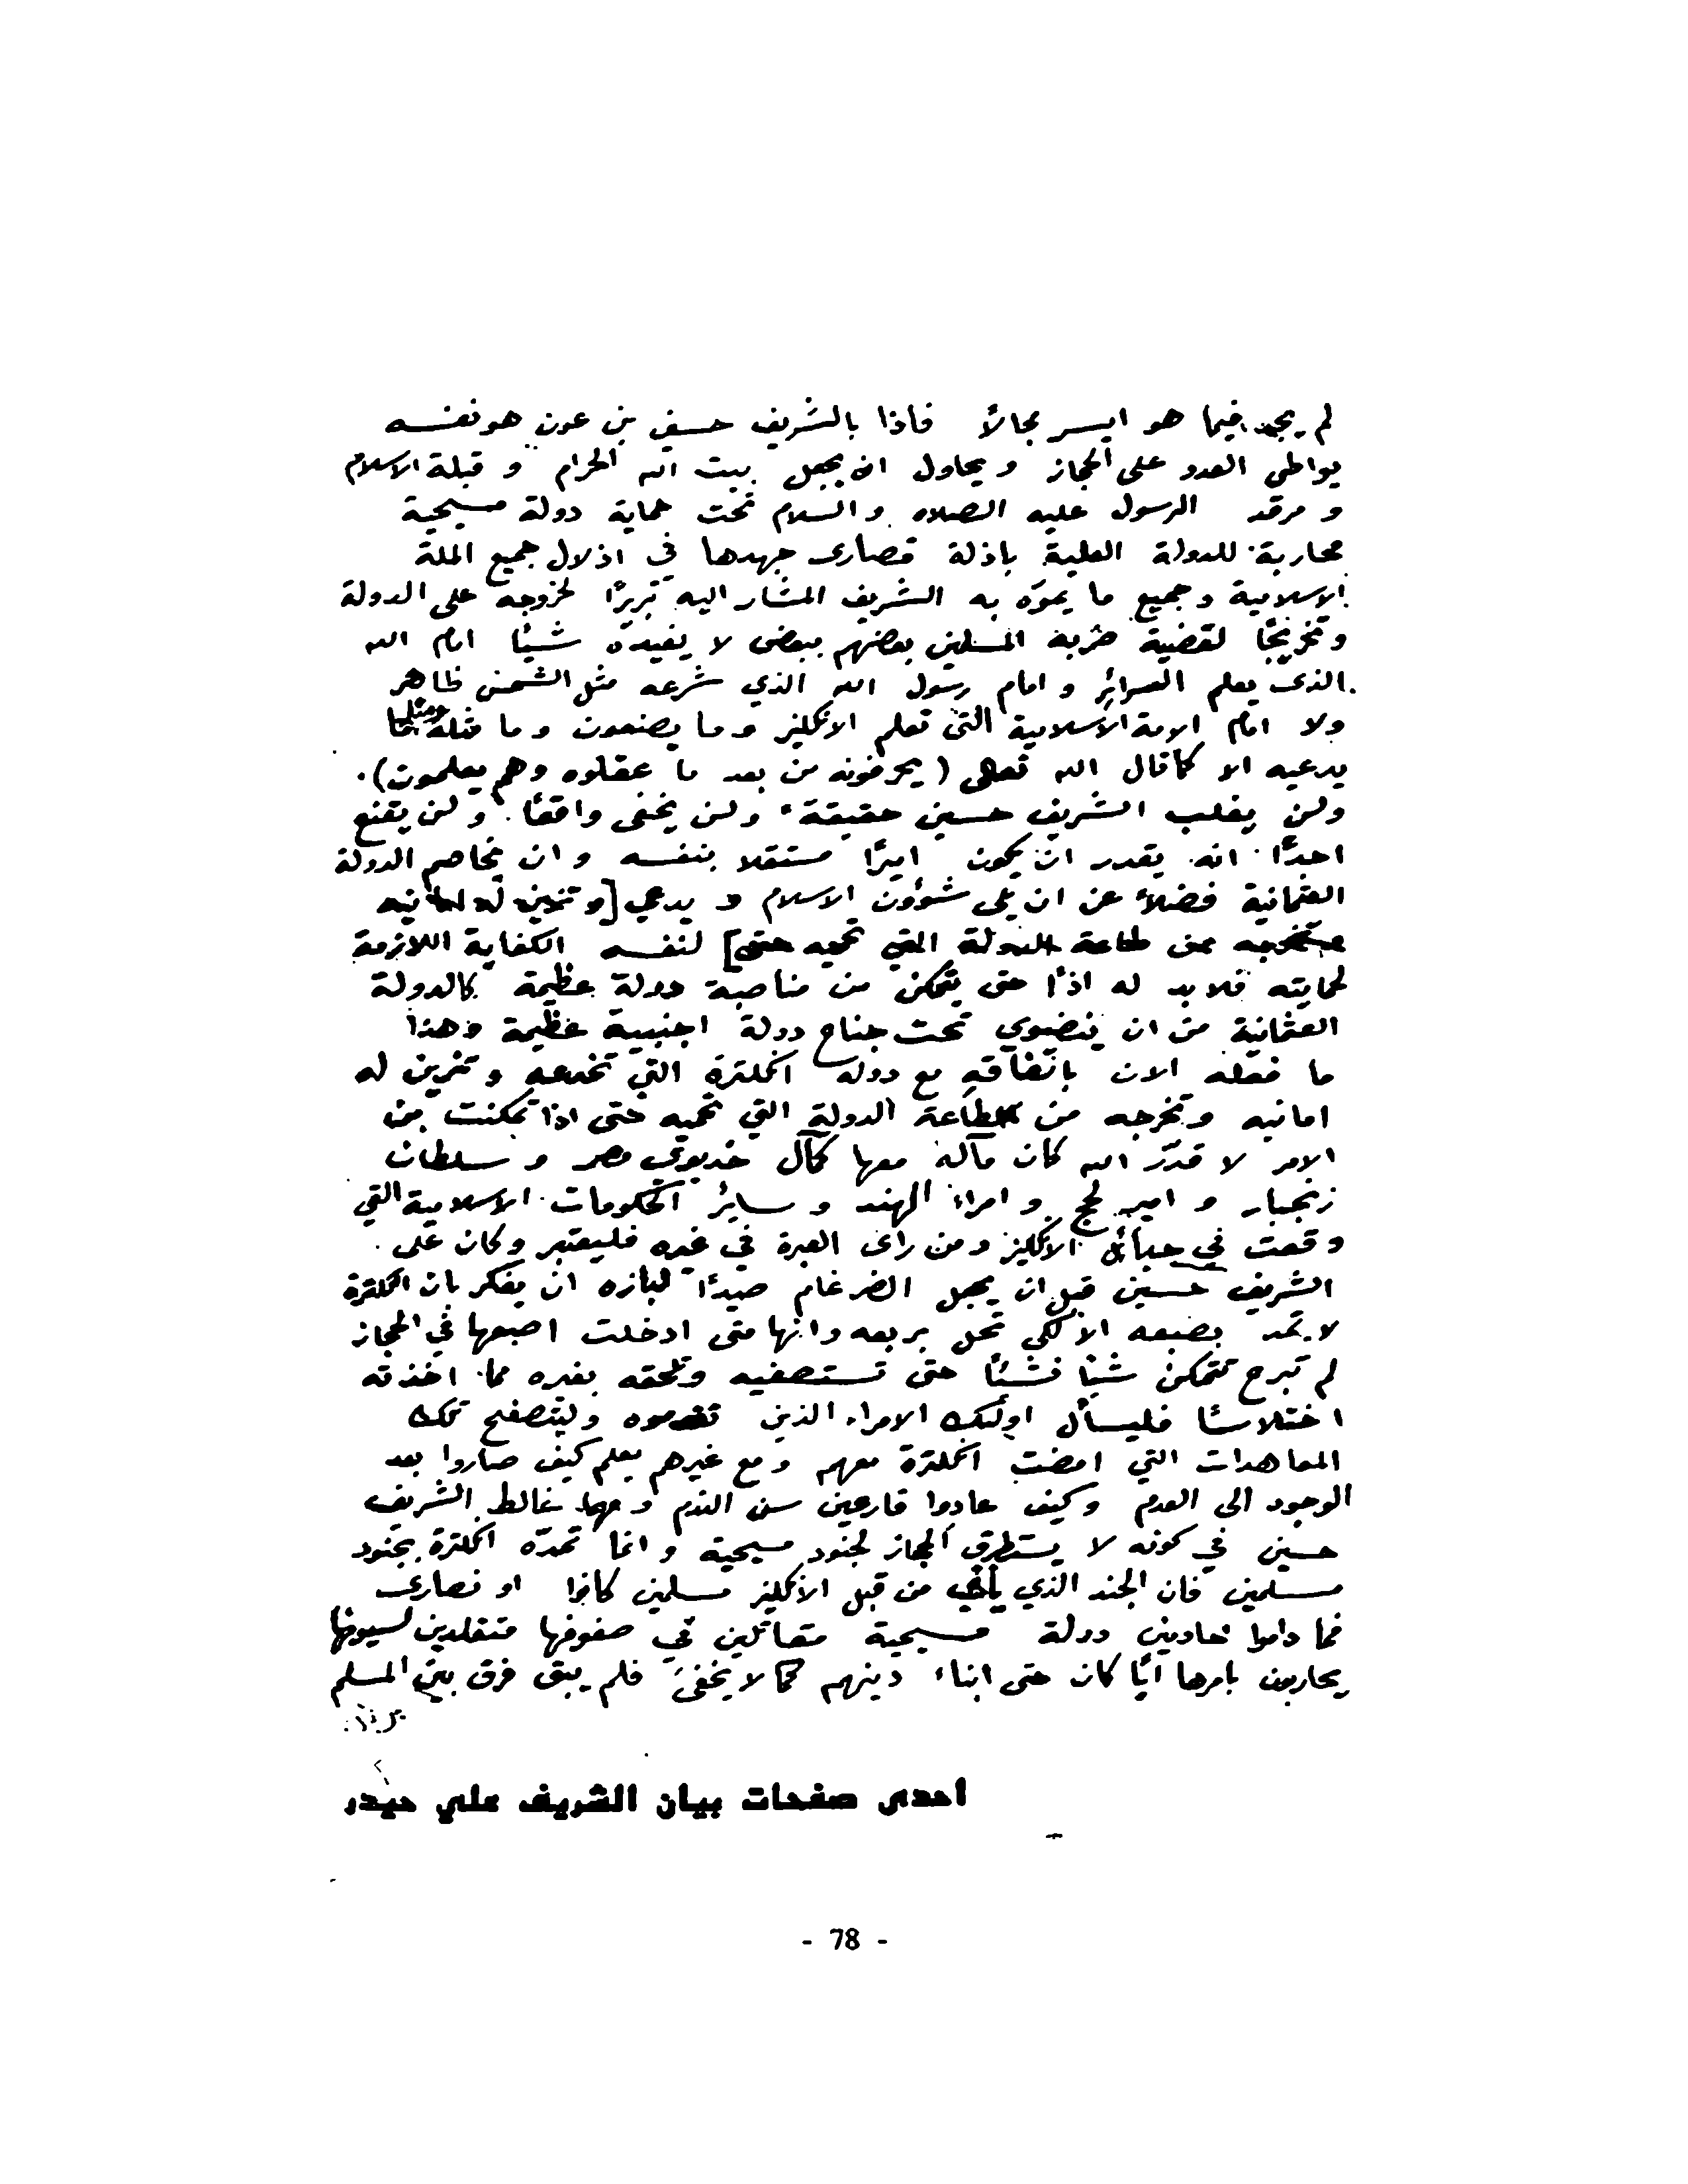 لم يجد فيما هو ايسر مجالاً فاذا بالشريف حسين بن عون هو نفسه
يواطي العدو على الحجاز ويحاول ان يجعل بيت الله الحرام و قبلة الاسلام
و مرقد الرسول عليه الصلاه والسلام تحت حماية دولة مسيحية
محاربة للدولة العلية باذلة قصارى جهدها في اذلال جميع الملة
الاسلامية وجميع ما يموّه به الشريف المشار اليه تبريرًا لخروجه على الدولة
وتخريجًا لقضية ضربه المسلمين بعضهم ببعض لا يفيده شيئًا امام الله
الذى يعلم السرائر و امام رسول الله الذي شرعه مثل الشمس ظاهر
ولا امام الامة الاسلامية التي تعلم الانكليز وما يصنعون وما مثله ومثل ما
يدعيه الا كما قال الله تعالى (يحرفونه من بعد ما عقلوه وهم يعلمون).
ولن يغلب الشريف حسين حقيقة ولن يخفى واقعًا ولن يقنع
احدًا انه يقدر ان يكون اميرًا مستقلا بنفسه و ان يخاصم الدولة
العثمانية فضلاً عن ان يلى شؤون الاسلام و يدعي [و تزين له امانيه
وتخرجه من طاعة الدولة التي تحميه حتى] لنفسه الكفاية اللازمة
لحمايته فلا بد له اذًا حتى يتمكن من مناصبة دولة عظيمة كالدولة
العثمانية من ان ينضوي تحت جناح دولة اجنبية عظيمة وهذا
ما فعله الان باتفاقه مع دولة انكلترة التي تخدعه و تزين له
امانيه وتخرجه من طاعة الدولة التي تحميه حتى اذا تمكنت من
الامر لا قدّر الله كان مآله معها كمآل خديوي مصر و سلطان
زنجبار و امير لحج و امراء الهند و سائر الحكومات الاسلامية التي
وقعت في حبائل الانكليز ومن راى العبرة في غيره فليعتبر وكان على
الشريف حسين قبل ان يجعل الضرغام صيدًا لبازه ان يفكر بان انكلترة
لا تمد بضبعه الا لكي تحل بربعه وانها متى ادخلت اصبعها في الحجاز
لم تبرح تتمكن شيئًا فشيئًا حتى تستصفيه وتلحقه بغيره مما اخذته
اختلاسًا فليسأل اولئك الامراء الذين تقدموه وليتصفح تلك
المعاهدات التي امضت انكلترة معهم ومع غيرهم يعلم كيف صاروا بعد
الوجود الى العدم وكيف عادوا قارعين سن الندم ومهما غالط الشريف
حسين في كونه لا يستطرق الحجاز لجنود مسيحية و انما تمدّه انكلترة بجنود
مسلمين فان الجند الذي يأتي من قبل الانكليز مسلمين كانوا او نصارى
فما داموا خادمين دولة مسيحية متقاتلين في صفوفها متقلدين لسيوفها
يحاربون بامرها ايًا كان حتى ابناء دينهم كما لا يخفى فلم يبق فرق بين المسلم
احدى صفحات بيان الشريف علي حيدر
- 78 -